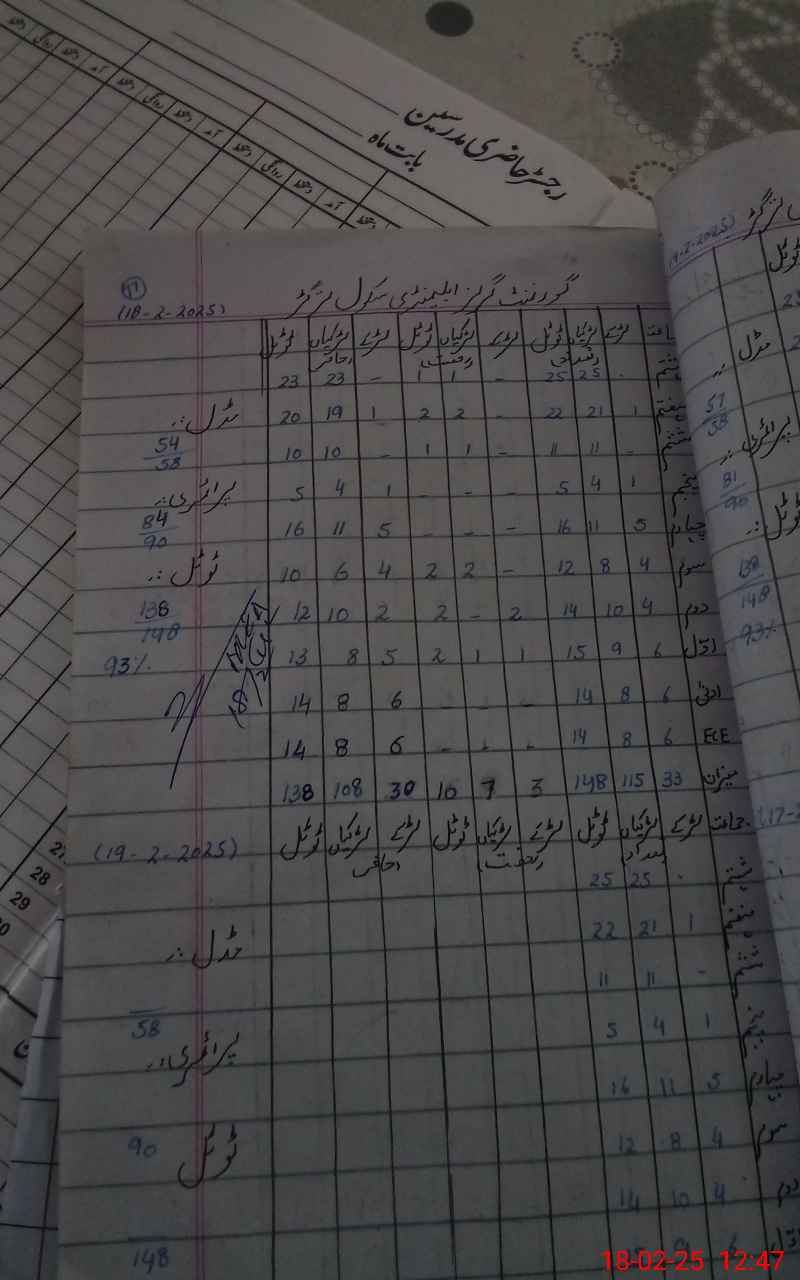 رجسٹر حاضری مدرسین
بابت ماہ
آمد دستخط روانگی دستخط آمد دستخط روانگی دستخط آمد دستخط
17
(18-2-2025) گورنمنٹ گرلز ایلیمنٹری سکول
لڑکے لڑکیاں ٹوٹل لڑکے لڑکیاں ٹوٹل لڑکے لڑکیاں ٹوٹل
تعداد رخصت حاضر
ہشتم - 25 25 - 1 1 - 23 23
ہفتم 1 21 22 - 2 2 1 19 20 مڈل :.
ششم - 11 11 - 1 1 - 10 10 54/58
پنجم 1 4 5 - - - 1 4 5 پرائمری :.
چہارم 5 11 16 - - - 5 11 16 84/90
سوم 4 8 12 - 2 2 4 6 10 ٹوٹل :.
دوم 4 10 14 2 - 2 2 10 12 138/148
اول 6 9 15 1 1 2 5 8 13 93%
ادنیٰ 6 8 14 - - - 6 8 14
ECE 6 8 14 - - - 6 8 14
میزان 33 115 148 3 7 10 30 108 138
جماعت لڑکے لڑکیاں ٹوٹل لڑکے لڑکیاں ٹوٹل لڑکے لڑکیاں ٹوٹل (19-2-2025)
تعداد رخصت حاضر
ہشتم - 25 25
ہفتم 1 21 22 مڈل :.
ششم - 11 11
پنجم 1 4 5 58
چہارم 5 11 16 پرائمری :.
سوم 4 8 12 90 ٹوٹل
دوم 4 10 14
اول 6 9 148
(9-2-2025)
ٹوٹل
مڈل :.
57/58
پرائمری :.
81/90
ٹوٹل :.
138/148
93%
28
29
18-02-25 12:47